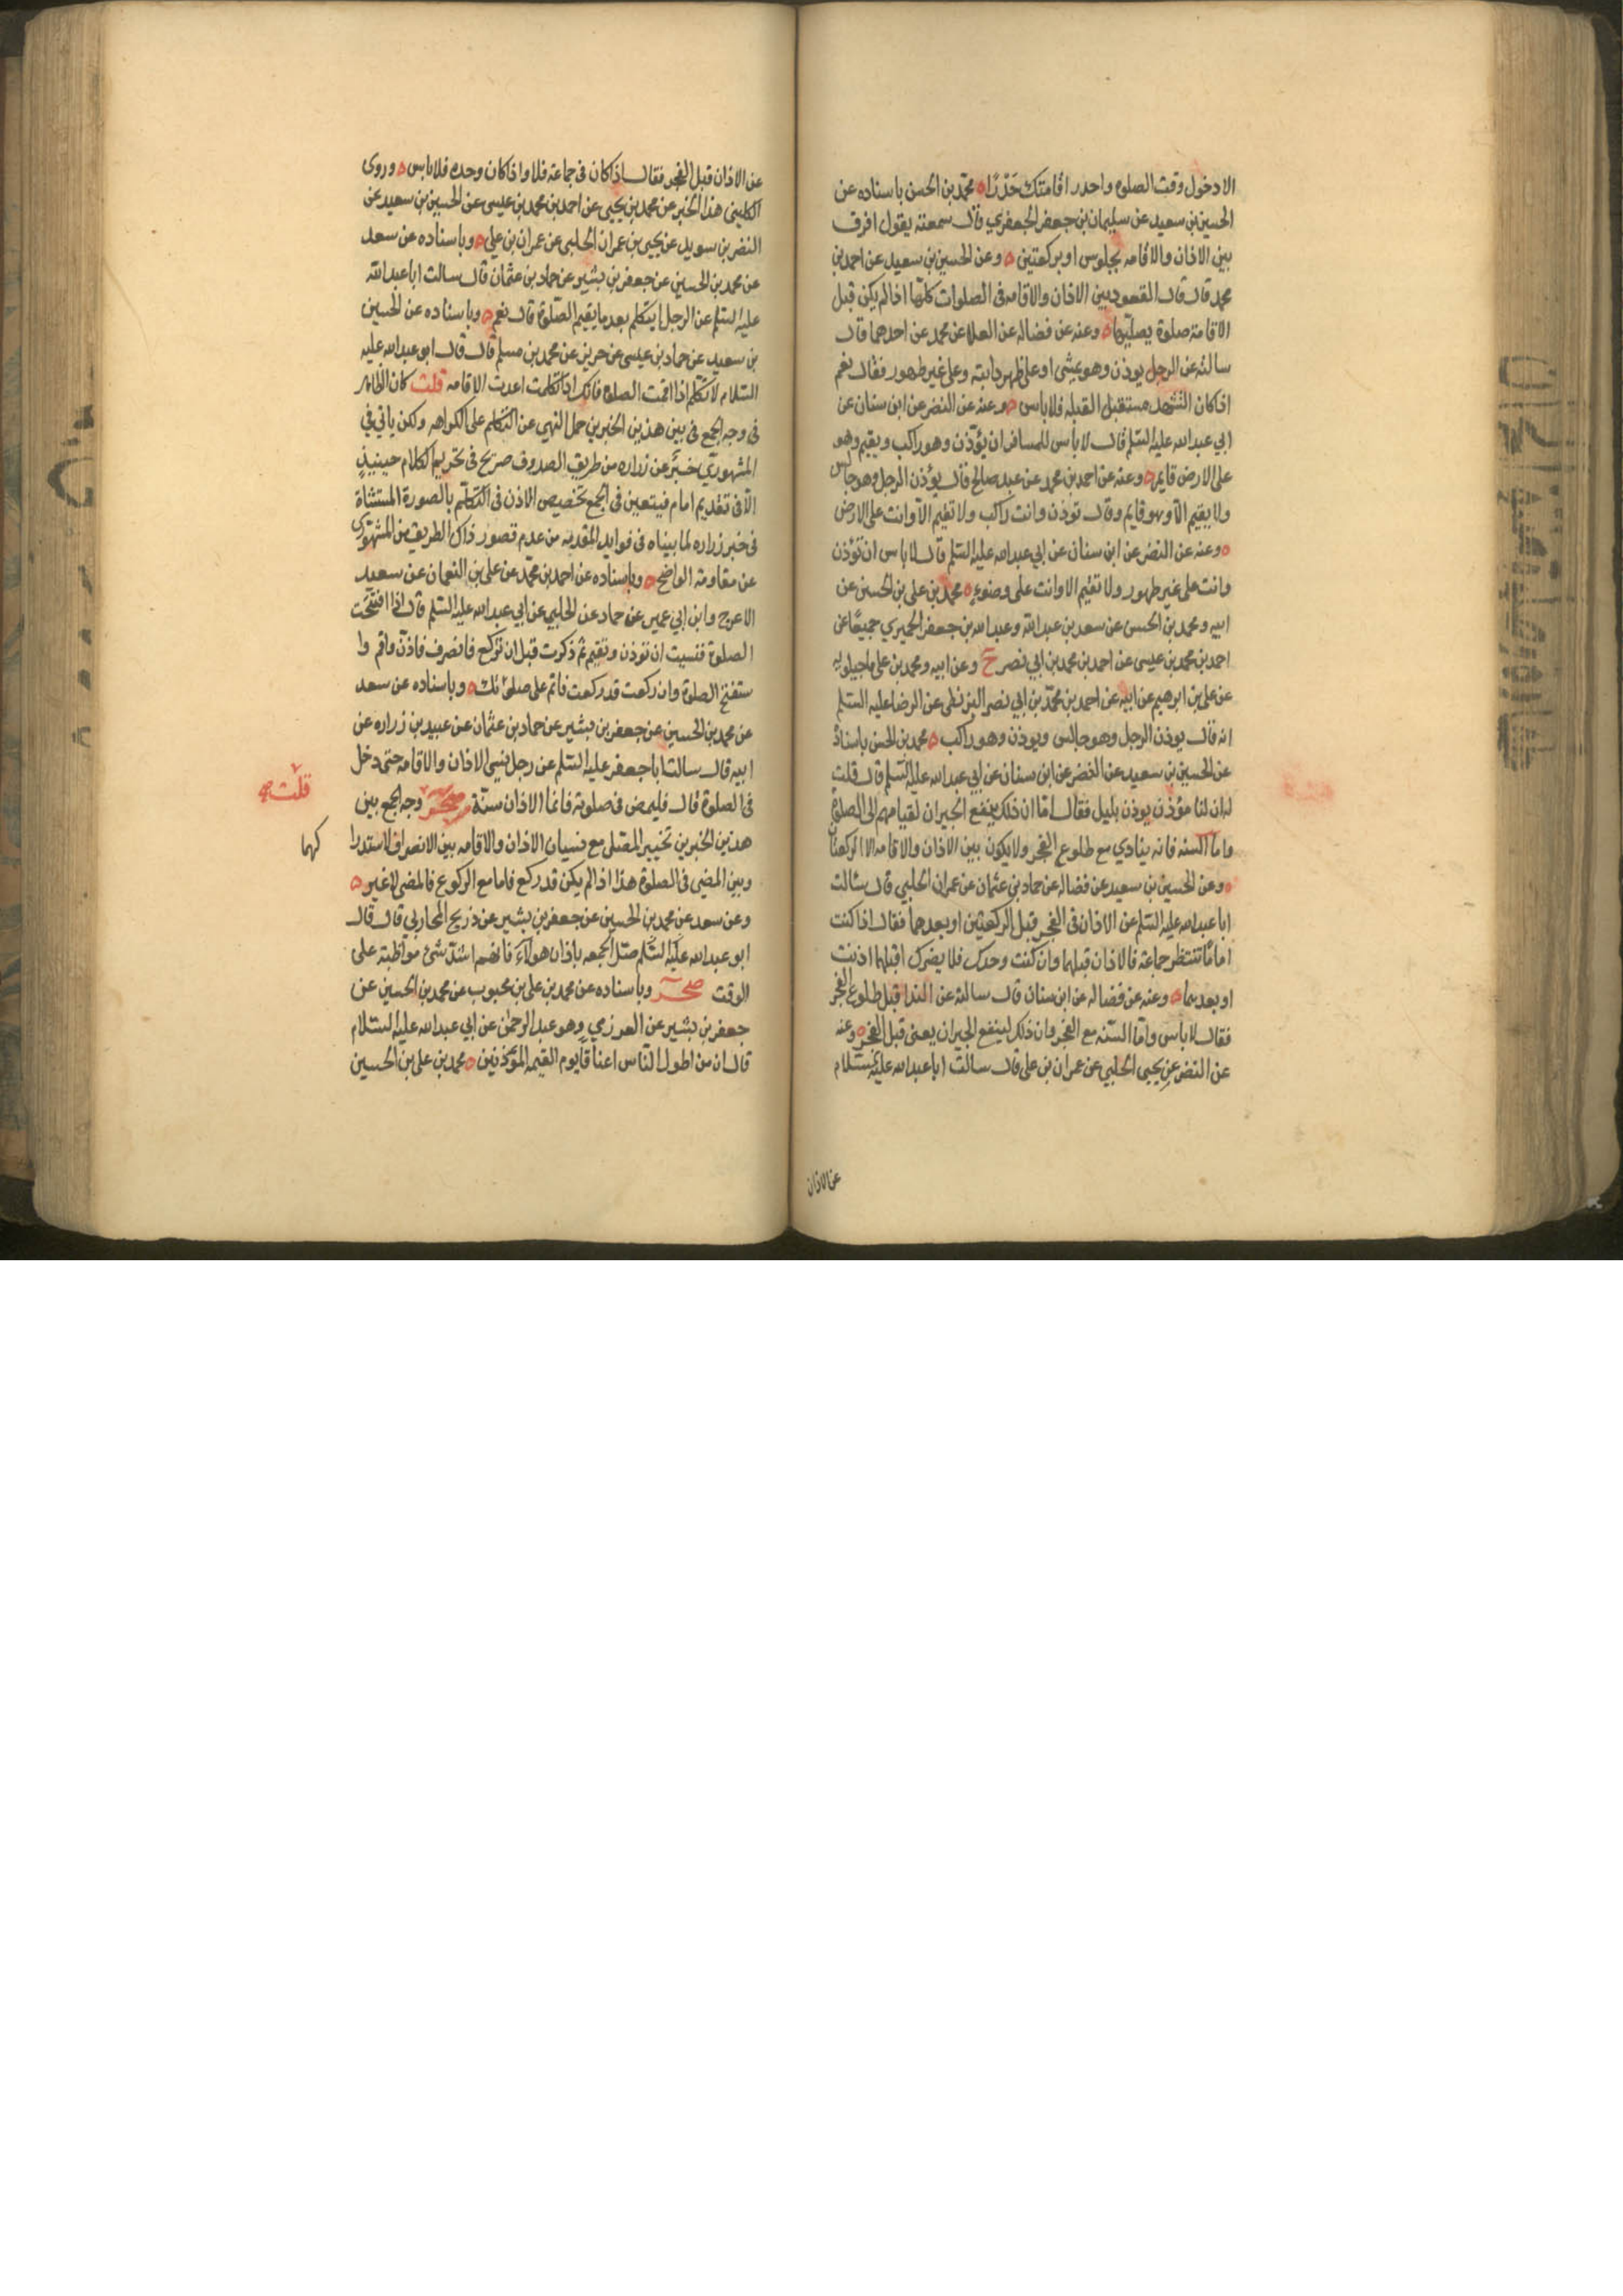 الا دخول وقت الصلوة واحدر اقامتك حَدْرًا ه محمد بن الحسن باسناده عن
الحسين بن سعيد عن سليمان بن جعفر الجعفري قال سمعته يقول افرق
بين الاذان والاقامه بجلوس او بركعتين ه وعن الحسين بن سعيد عن احمد بن
محمد قال قال القعود بين الاذان والاقامه في الصلوات كلها اذا لم يكن قبل
الاقامة صلوة يصليها ه وعنه عن فضاله عن العلا عن محمد عن احدهما قال
سالته عن الرجل يوذن وهو يمشى او على ظهر دابته وعلى غير طهور فقال نعم
اذا كان التشهد مستقبل القبله فلا باس ه وعنه عن النضر عن ابن سنان عن
ابي عبد الله عليه السلم قال لا باس للمسافر ان يؤذن وهو راكب ويقيم وهو
على الارض قايم ه وعنه عن احمد بن محمد عن عبد صالح قال يؤذن الرجل وهو جالس
ولا يقيم الا وهو قايم وقال توذن وانت راكب ولا تقيم الا وانت على الارض
ه وعنه عن النضر عن ابن سنان عن ابي عبد الله عليه السلم قال لا باس ان تؤذن
وانت على غير طهور ولا تقيم الا وانت على وضوء ه محمد بن على بن الحسين عن
ابيه ومحمد بن الحسن عن سعد بن عبد الله وعبد الله بن جعفر الحميري جميعًا عن
احمد بن محمد بن عيسى عن احمد بن محمد بن ابي نصر ح وعن ابيه ومحمد بن على ماجيلويه
عن على بن ابرهيم عن ابيه عن احمد بن محمد بن ابي نصر البزنطى عن الرضا عليه السلم
انه قال يوذن الرجل وهو جالس ويوذن وهو راكب ه محمد بن الحسن باسناده
عن الحسين بن سعيد عن النضر عن ابن سنان عن ابي عبد الله عليه السلم قال قلت
له ان لنا مؤذن يوذن بليل فقال اما ان ذلك ينفع الجيران لقيامهم الى الصلوة
واما السنه فانه ينادي مع طلوع الفجر ولا يكون بين الاذان والاقامه الا الركعتان
ه وعن الحسين بن سعيد عن فضاله عن حماد بن عثمان عن عمران الحلبي قال سالت
ابا عبد الله عليه السلم عن الاذان في الفجر قبل الركعتين او بعدهما فقال اذا كنت
امامًا تنتظر جماعة فالاذان قبلهما وان كنت وحدك فلا يضرك اقبلهما اذنت
او بعدهما ه وعنه عن فضاله عن ابن سنان قال سالته عن الندا قبل طلوع الفجر
فقال لا باس واما السنه مع الفجر وان ذلك لينفع الجيران يعنى قبل الفجر ه وعنه
عن النضر عن يحيى الحلبي عن عمران بن على قال سالت ابا عبد الله عليه السلام
عن الاذان
عن الاذان قبل الفجر فقال اذا كان فى جماعة فلا واذا كان وحده فلا باس ه وروى
الكلينى هذا الخبر عن محمد بن يحيى عن احمد بن محمد بن عيسى عن الحسين بن سعيد عن
النضر بن سويد عن يحيى بن عمران الحلبى عن عمران بن على ه وباسناده عن سعد
عن محمد بن الحسين عن جعفر بن بشير عن حماد بن عثمان قال سالت ابا عبد الله
عليه السلم عن الرجل ايتكلم بعد ما يقيم الصلوة قال نعم ه وباسناده عن الحسين
بن سعيد عن حماد بن عيسى عن حريز عن محمد بن مسلم قال قال ابو عبد الله عليه
السلام لا تتكلم اذا اقمت الصلوة فانك اذا تكلمت اعدت الاقامه قلت كان الظاهر
فى وجه الجمع فى بين هذين الخبرين حمل النهى عن التكلم على الكراهه ولكن ياتي في
المشهوري خبر عن زراره من طريق الصدوق صريح فى تحريم الكلام حينيذ
الا فى تقديم امام فيتعين فى الجمع تخصيص الاذن فى التكلم بالصورة المستثناة
فى خبر زراره لما بيناه فى فوايد المقدمه من عدم قصور ذاك الطريق من المشهوري
عن مقاومة الواضح ه وباسناده عن احمد بن محمد عن على بن النعمان عن سعيد
الاعرج وابن ابي عمير عن حماد عن الحلبي عن ابي عبد الله عليه السلم قال اذا افتتحت
الصلوة فنسيت ان توذن وتقيم ثم ذكرت قبل ان تركع فانصرف فاذن واقم وا
ستفتح الصلوة وان ركعت قد ركعت فاتم على صلوتك ه وباسناده عن سعد
عن محمد بن الحسين عن جعفر بن بشير عن حماد بن عثمان عن عبيد بن زراره عن
ابيه قال سالت ابا جعفر عليه السلم عن رجل نسى الاذان والاقامه حتى دخل
فى الصلوة قال فليمض فى صلوته فانما الاذان سنة صحر وجه الجمع بين
قلت
هذين الخبرين تخيير المصلى مع نسيان الاذان والاقامه بين الانصراف لاستدرا
كهما
وبين المضى فى الصلوة هذا اذا لم يكن قد ركع فاما مع الركوع فالمضى لا غير ه
وعن سعد عن محمد بن الحسين عن جعفر بن بشير عن ذريح المحاربي قال قال
ابو عبد الله عليه السلم صل الجمعه باذان هولآء فانهم اشد شئ مواظبة على
الوقت صحر وباسناده عن محمد بن على بن محبوب عن محمد بن الحسين عن
جعفر بن بشير عن العرزمي وهو عبد الرحمن عن ابي عبد الله عليه السلام
قال ان من اطول الناس اعناقا يوم القيمه المؤذنين ه محمد بن على بن الحسين